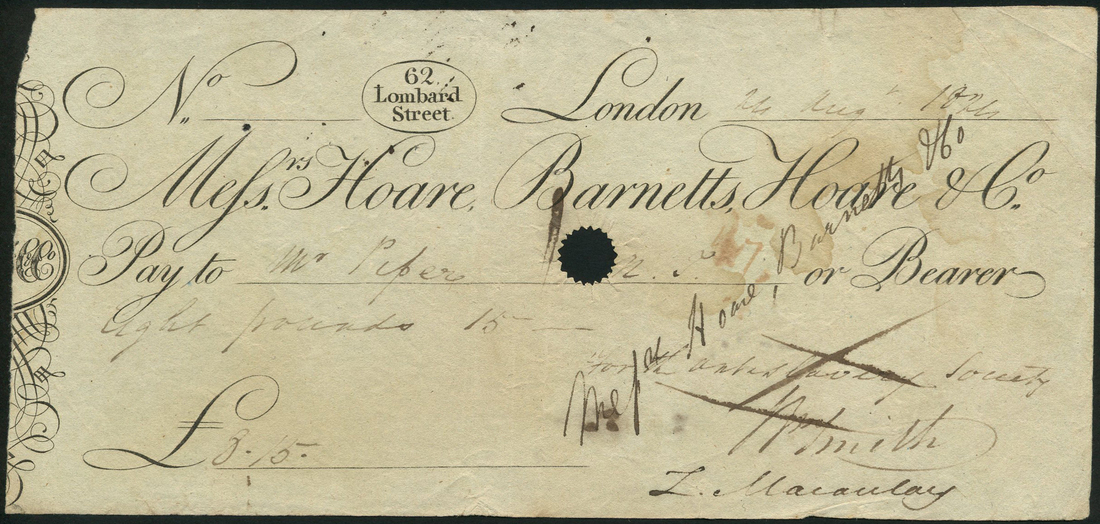 No.
62
Lombard
Street.
London 24 Augt. 1824
Messrs. Hoare, Barnetts, Hoare & Co.
Pay to Mr Pifer or Bearer
Eight pounds 15 —
Messrs Hoare, Barnetts & Co
For the Antislavery Society
£ 8.15.
W Smith
Z. Macaulay